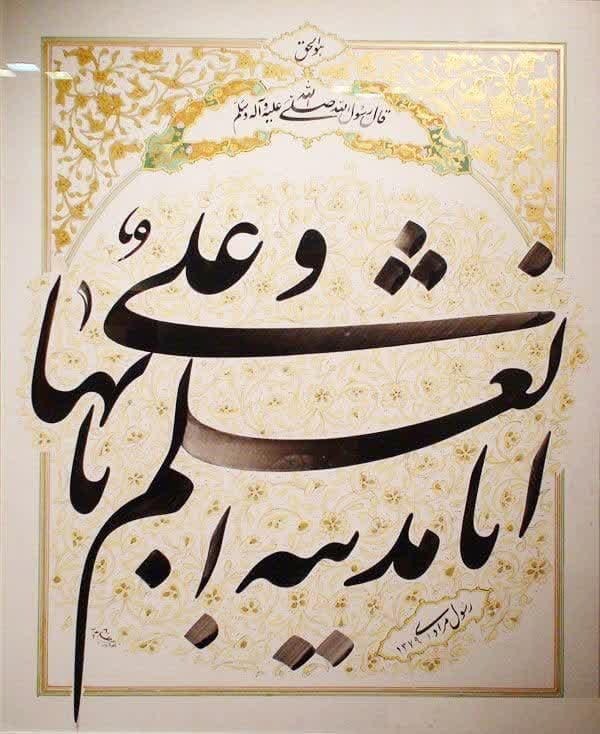 هوالحق
قال رسول الله صلی الله علیه و آله وسلم
انا مدینة العلم و علیٌ بابها
رسول مرادی ۱۳۷۹